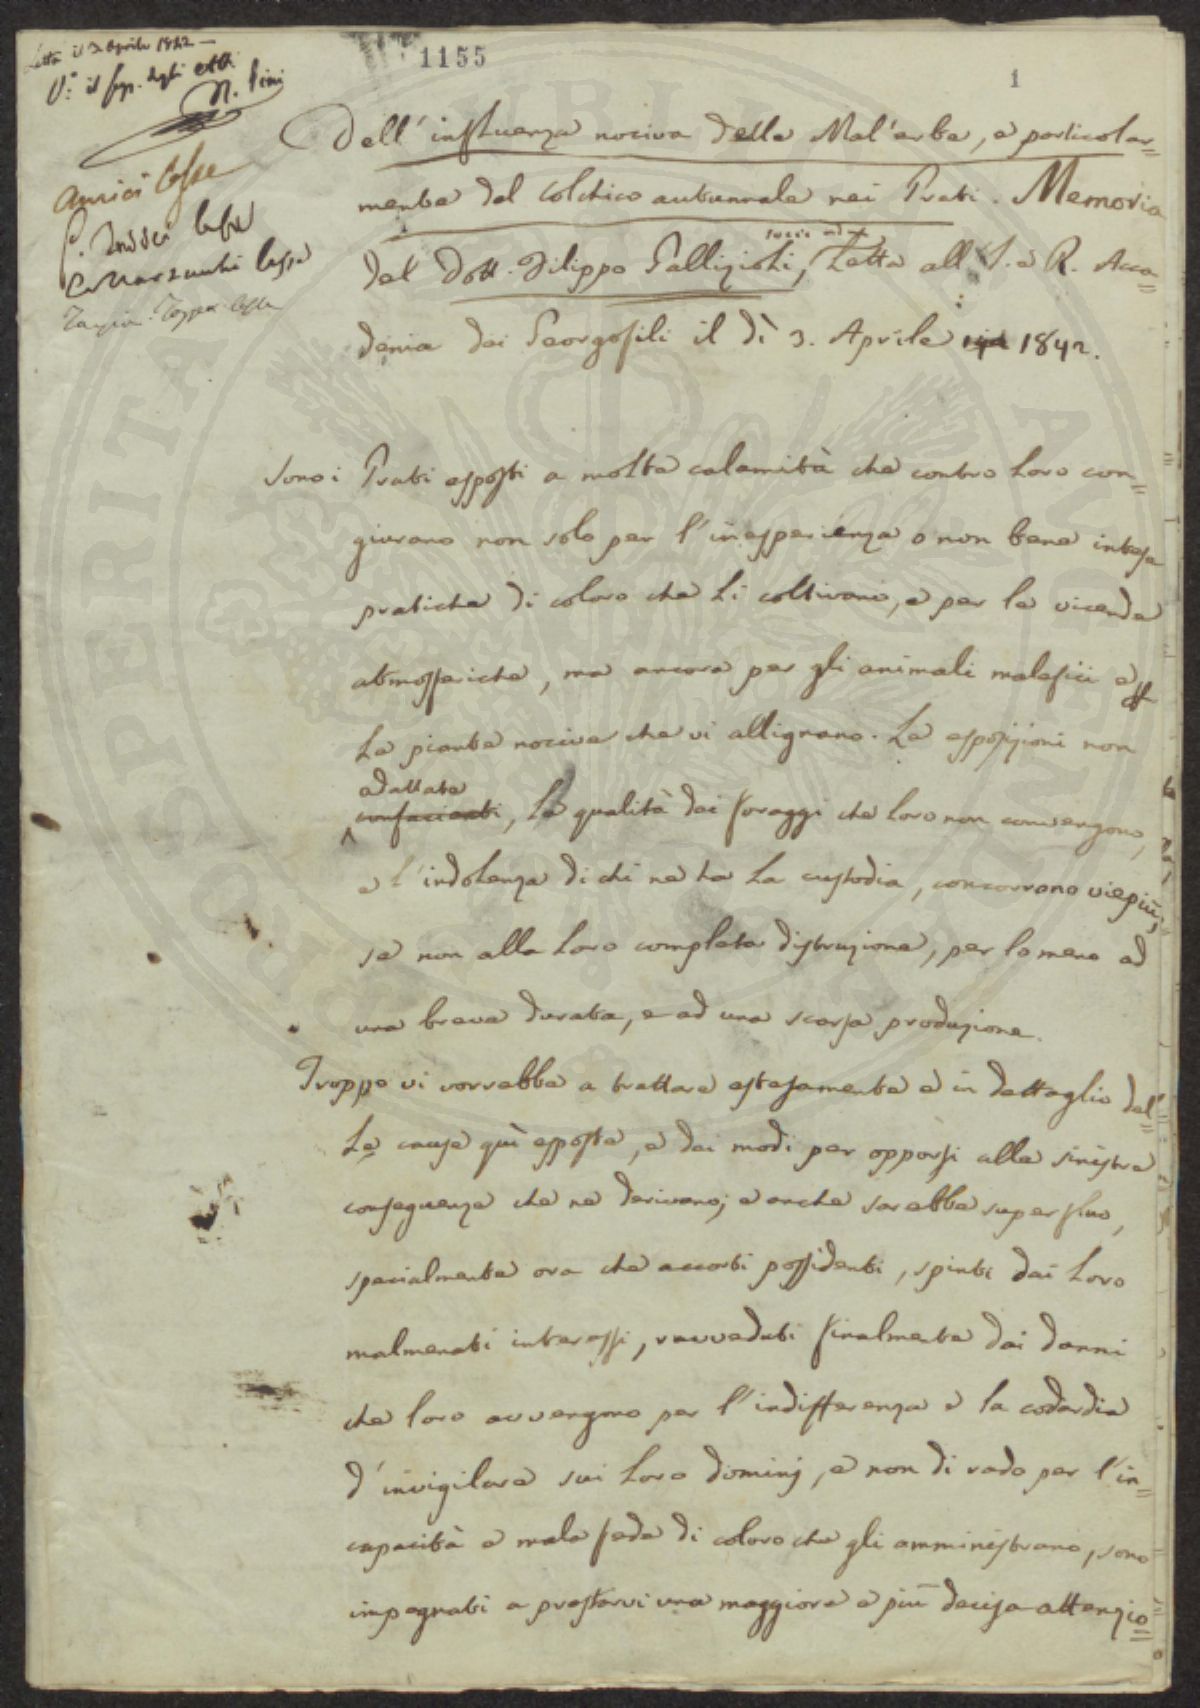 Letta il 3 Aprile 1842 —
V.° il Seg. degli Atti
1155
1
Dell'influenza nociva delle Mal'erbe, e particolar=
mente del Colchico autunnale nei Prati. Memoria
del Dott. Filippo Gallizioli, Letta all'I. e R. Acca=
demia dei Georgofili il dì 3. Aprile 1842.
Sono i Prati esposti a molte calamità che contro loro con=
giurano non solo per l'inesperienza o non bene intese
pratiche di coloro che li coltivano, e per le vicende
atmosferiche, ma ancora per gli animali malefici e
le piante nocive che vi allignano. Le esposizioni non
adattate
confacienti, la qualità dei foraggi che loro non convengono,
e l'indolenza di chi ne ha la custodia, concorrono viepiù,
se non alla loro completa distruzione, per lo meno ad
una breve durata, e ad una scarsa produzione.
Troppo vi vorrebbe a trattare estesamente e in dettaglio del=
le cause quì esposte, e dei modi per opporsi alle sinistre
conseguenze che ne derivano; e anche sarebbe superfluo,
specialmente ora che accorti possidenti, spinti dai loro
malmenati interessi, ravveduti finalmente dai danni
che loro avvengono per l'indifferenza e la codardia
d'invigilare sui loro dominj, e non di rado per l'in=
capacità e mala fede di coloro che gli amministrano, sono
impegnati a prestarvi una maggiore e più decisa attenzio=
PROSPERITATI